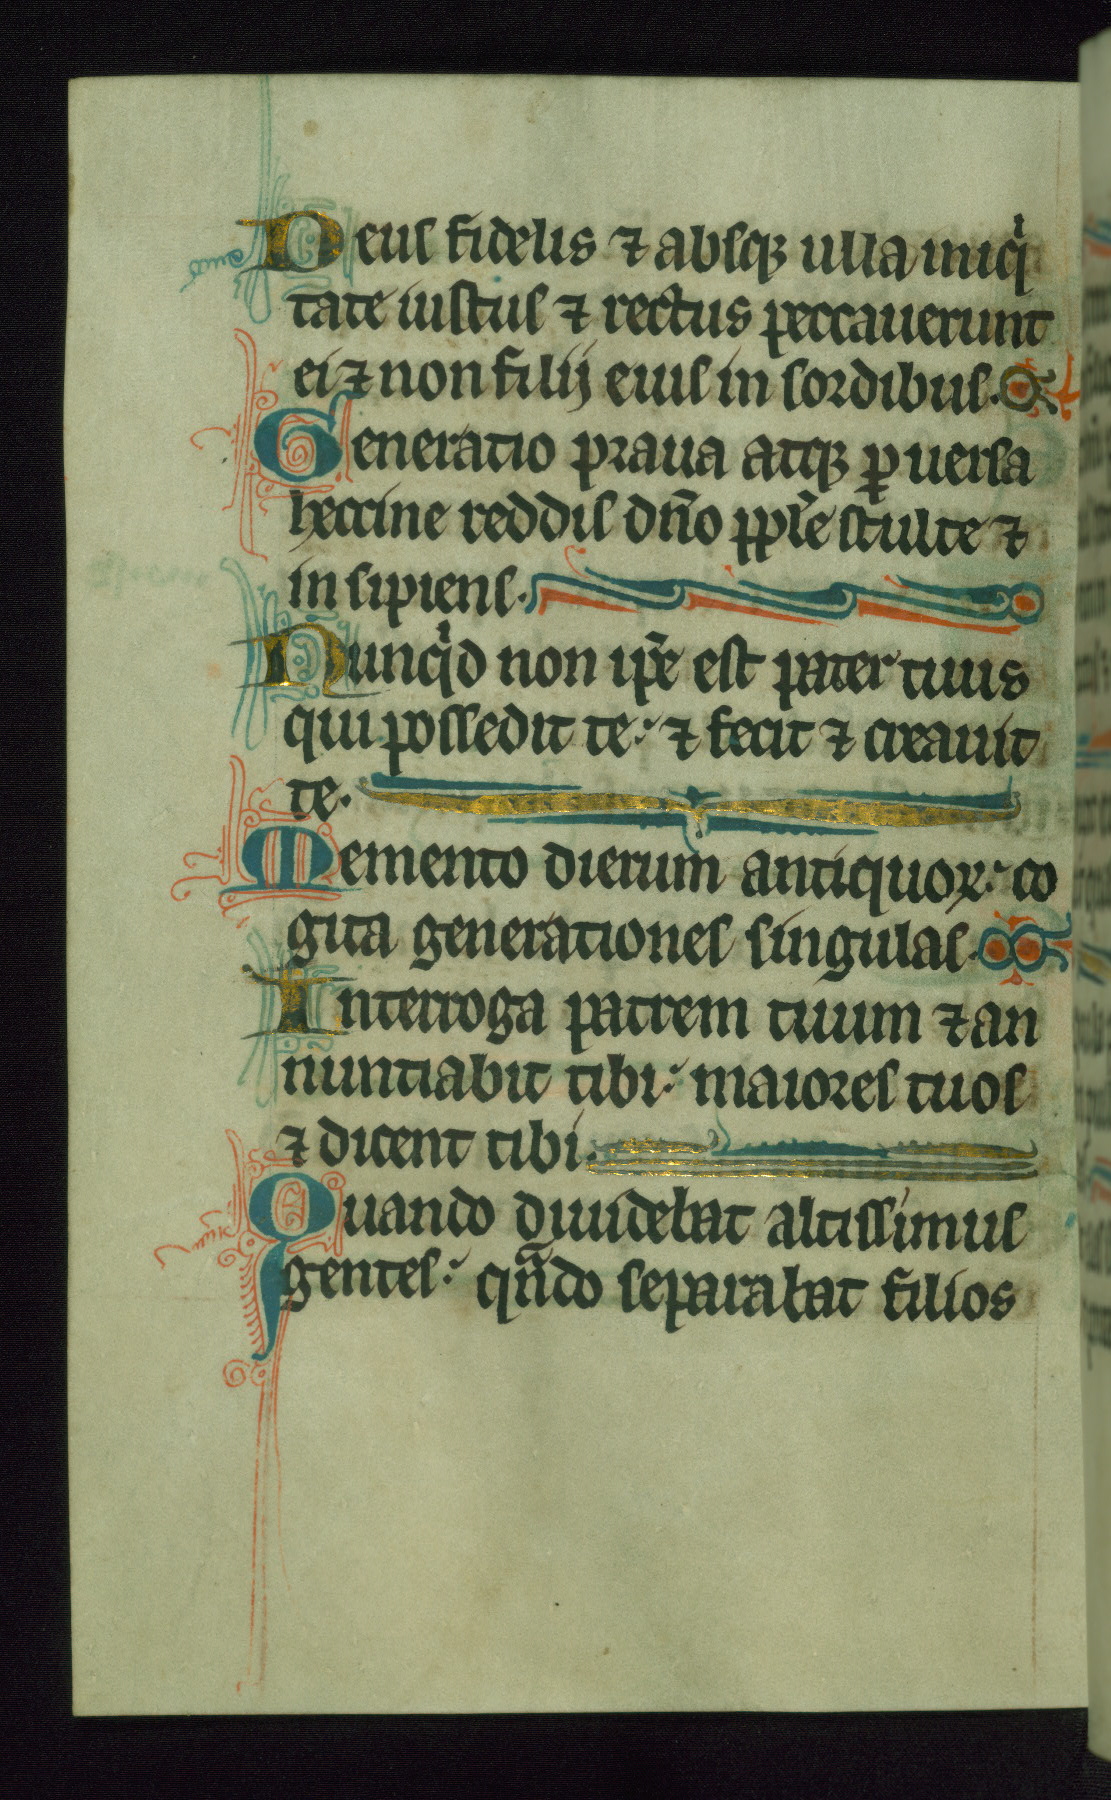 Deus fidelis ⁊ absqꝫ ulla iniqͥ
tate iustus ⁊ rectus peccauerunt
ei ⁊ non filij eius in sordibus.
Generatio praua atqꝫ ꝑuersa
heccine reddis dn̄o pp̄le stulte ⁊
insipiens.
Nunqͥd non ip̄e est pater tuus
qui possedit te: ⁊ fecit ⁊ creauit
te.
Memento dierum antiquoꝝ: co
gita generationes singulas.
Interroga patrem tuum ⁊ an
nuntiabit tibi: maiores tuos
⁊ dicent tibi.
Quando diuidebat altissimus
gentes: qn̄do separabat filios